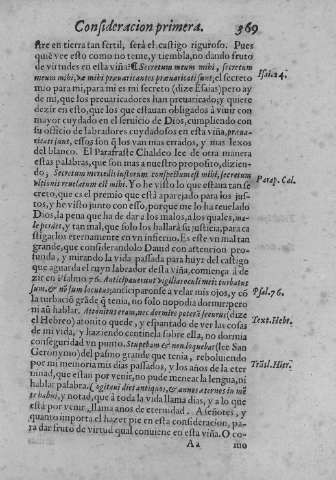 Consideracion primera. 369
stre en tierra tan fertil, será el castigo riguroso. Pues
què vee esto como no teme, y tiembla, no dando fruto
de virtudes en esta viña? Secretum meum mihi, secretum
meum mihi, væ mihi præuaricantes præuaricati sunt, el secreto
mio para mi, para mi es mi secreto (dize Esaias) pero ay
de mi, que los preuaricadores han preuaricado, y quiere
dezir en esto, que los que estauan obligados à viuir con
mayor cuydado en el seruicio de Dios, cumpliendo con
su officio de labradores cuydadosos en esta viña, præua-
ricati sunt, essos son q̃ los van mas errados, y mas lexos
del blanco. El Parafraste Chaldeo lee de otra manera
estas palabras, que son mas a nuestro proposito, dizien-
do, Secretum mercedis iustorum conspectum est mihi, secretum
vltionis reuelatum est mihi. Yo he visto lo que estaua tan se
creto, que es el premio que està aparejado para los jus-
tos, y he visto junto con esso, porque me lo ha reuelado
Dios, la pena que ha de dar a los malos, a los quales, ma-
le perdet, y tan mal, que solo los hallarà su justicia, para ca
stigarlos eternamente en vn infierno. Es este vn mal tan
grande, que considerandolo Dauid con attencion pro-
funda, y mirando la vida passada para huyr del castigo
que aguarda el ruyn labrador desta viña, comença à de
zir en Psalmo 76. Anticipauerunt vigilias oculi mei: turbatus
sum, & nõ sum locutus, anticiparonse a velar mis ojos, y cõ
la turbaciõ grãde q̃ tenia, no solo nopodia dormir, pero
ni aũ hablar. Attonitus eram, nec dormire poteram securus (dize
el Hebreo) atonito quede, y espantado de ver las cosas
de mi vida, y haziendo centinela sobre ella, no dormia
conseguridad vn punto. Stupebam & non loquebar (lee San
Geronymo) del pasmo grande que tenia, reboluiendo
por mi memoria mis dias passados, y los años de la eter
nidad, que estan por venir, no pude menear la lengua, ni
hablar palabra. Cogitaui dies antiquos, & annos æternos in mẽ
te habui, y notad, que à toda la vida llama dias, y a lo que
està por venir, llama años de eternidad. A señores, y
quanto importa el hazer pie en esta consideracion, pa-
ra dar fruto de virtud qual conuiene en esta viña. O co-
Aa mo
Isai. 24.
Parap. Cal.
Psal. 76.
Text. Hebr.
Trãsl. Hier.